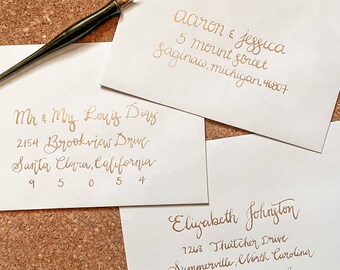 aaron & jessica
5 mount street
saginaw, michigan 46807
Mr & Mrs. Louis Diaz
2154 Brookview Drive
Santa Clara, California
9 5 0 5 4
Elizabeth Johnston
7268 Thatcher Drive
Summerville, North Carolina